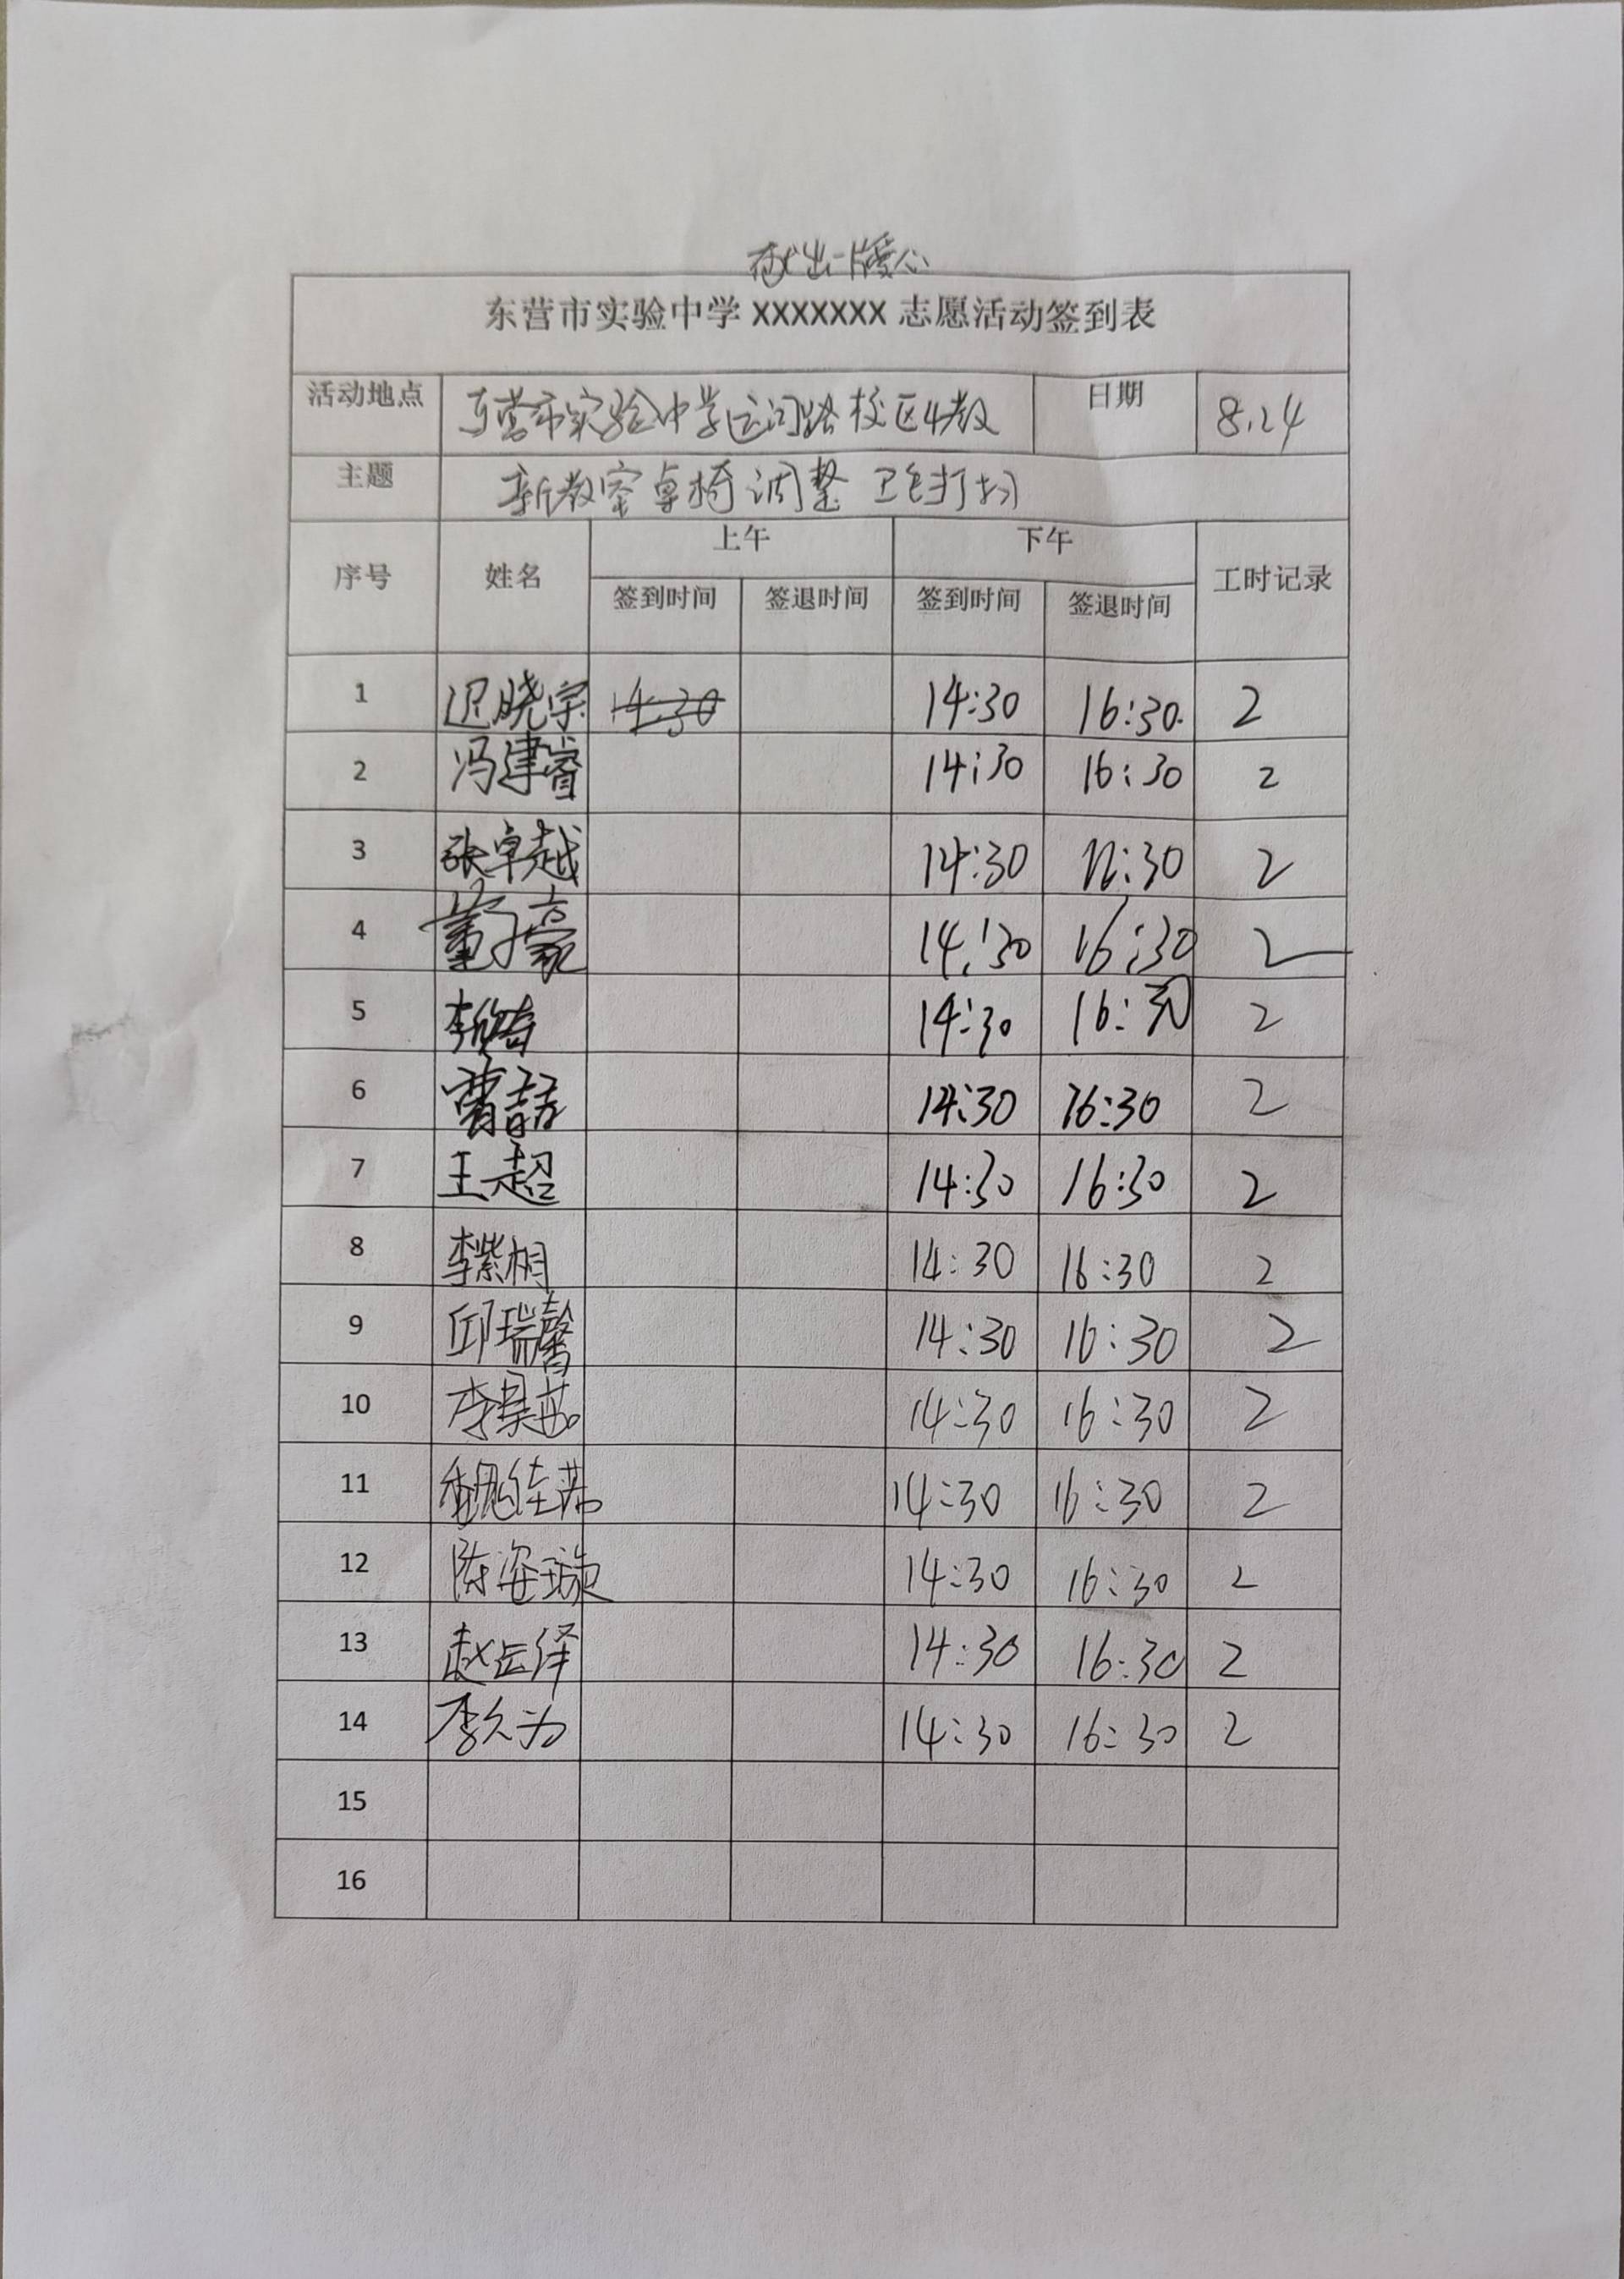 献出一份爱心
东营市实验中学 XXXXXXX 志愿活动签到表
活动地点 东营市实验中学运河路校区4教 日期 8.24
主题 新教室桌椅调整 卫生打扫
上午 下午
序号 姓名 工时记录
签到时间 签退时间 签到时间 签退时间
1 迟晓宗 14:30 14:30 16:30 2
2 冯建睿 14:30 16:30 2
3 张卓越 14:30 16:30 2
4 董子豪 14:30 16:30 2
5 李 14:30 16:30 2
6 曹喆 14:30 16:30 2
7 王超 14:30 16:30 2
8 李紫桐 14:30 16:30 2
9 邱瑞馨 14:30 16:30 2
10 李昊茹 14:30 16:30 2
11 魏佳 14:30 16:30 2
12 陈姿璇 14:30 16:30 2
13 赵岳绎 14:30 16:30 2
14 李久为 14:30 16:30 2
15
16